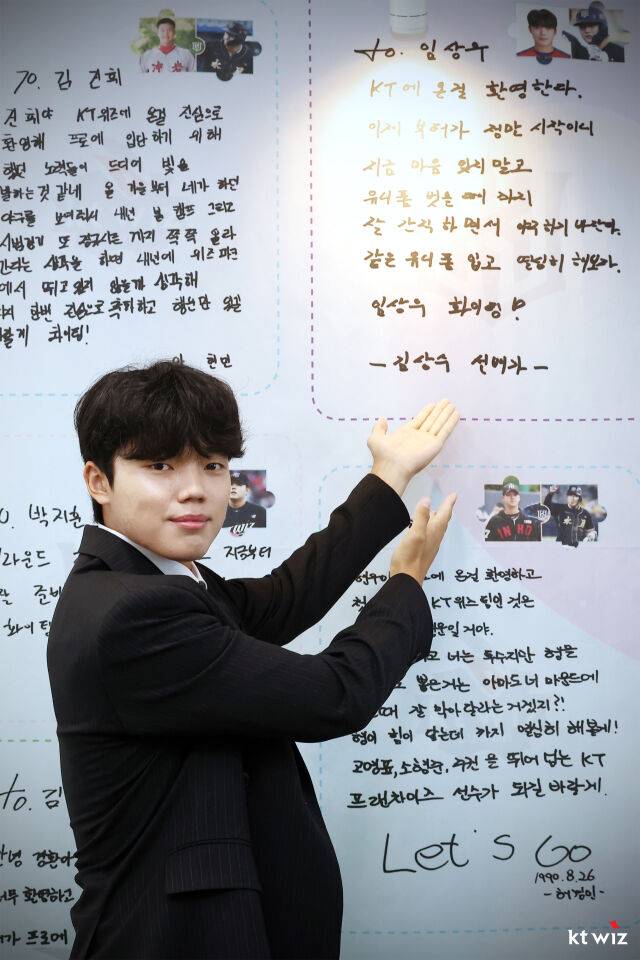 TO. 김 건희
건희야 KT위즈에 온걸 진심으로
환영해 프로에 입단하기 위해
했던 노력들이 드디어 빛을
발하는것 같네 올 가을부터 네가 하던
야구를 보여줘서 내년 봄 캠프 그리고
시범경기 또 정규시즌 까지 쭉 쭉 올라
간다는 생각을 하면 내년에 위즈 파크
에서 뛰고 있지 않을까 생각해
다시 한번 진심으로 축하하고
화이팅!
현민
to. 임상우
KT에 온걸 환영한다.
이제 목허가 정말 시작이니
지금 마음 잊지말고
유니폼 벗을 때 까지
잘 간직 하면서 야구하기 바란다.
같은 유니폼 입고 열심히 해보자.
임상우 화이팅!
- 김상수 선배가 -
박지훈
라운드 지금부터
준비
화이팅
온걸 환영하고
KT위즈 팀인 것은
일거야.
너는 투수지만 형을
뽑은거는 아마도 너 마운드에
때 잘 막아달라는 거겠지?!
형이 힘이 닿는데 까지 열심히 해볼게!
고영표, 소형준, 주권 을 뛰어 넘는 KT
프랜차이즈 선수가 되길 바랄게.
Let's Go
1990.8.26
- 허경민 -
to. 김
안녕 경환아
너무 환영하고
프로에
kt wiz